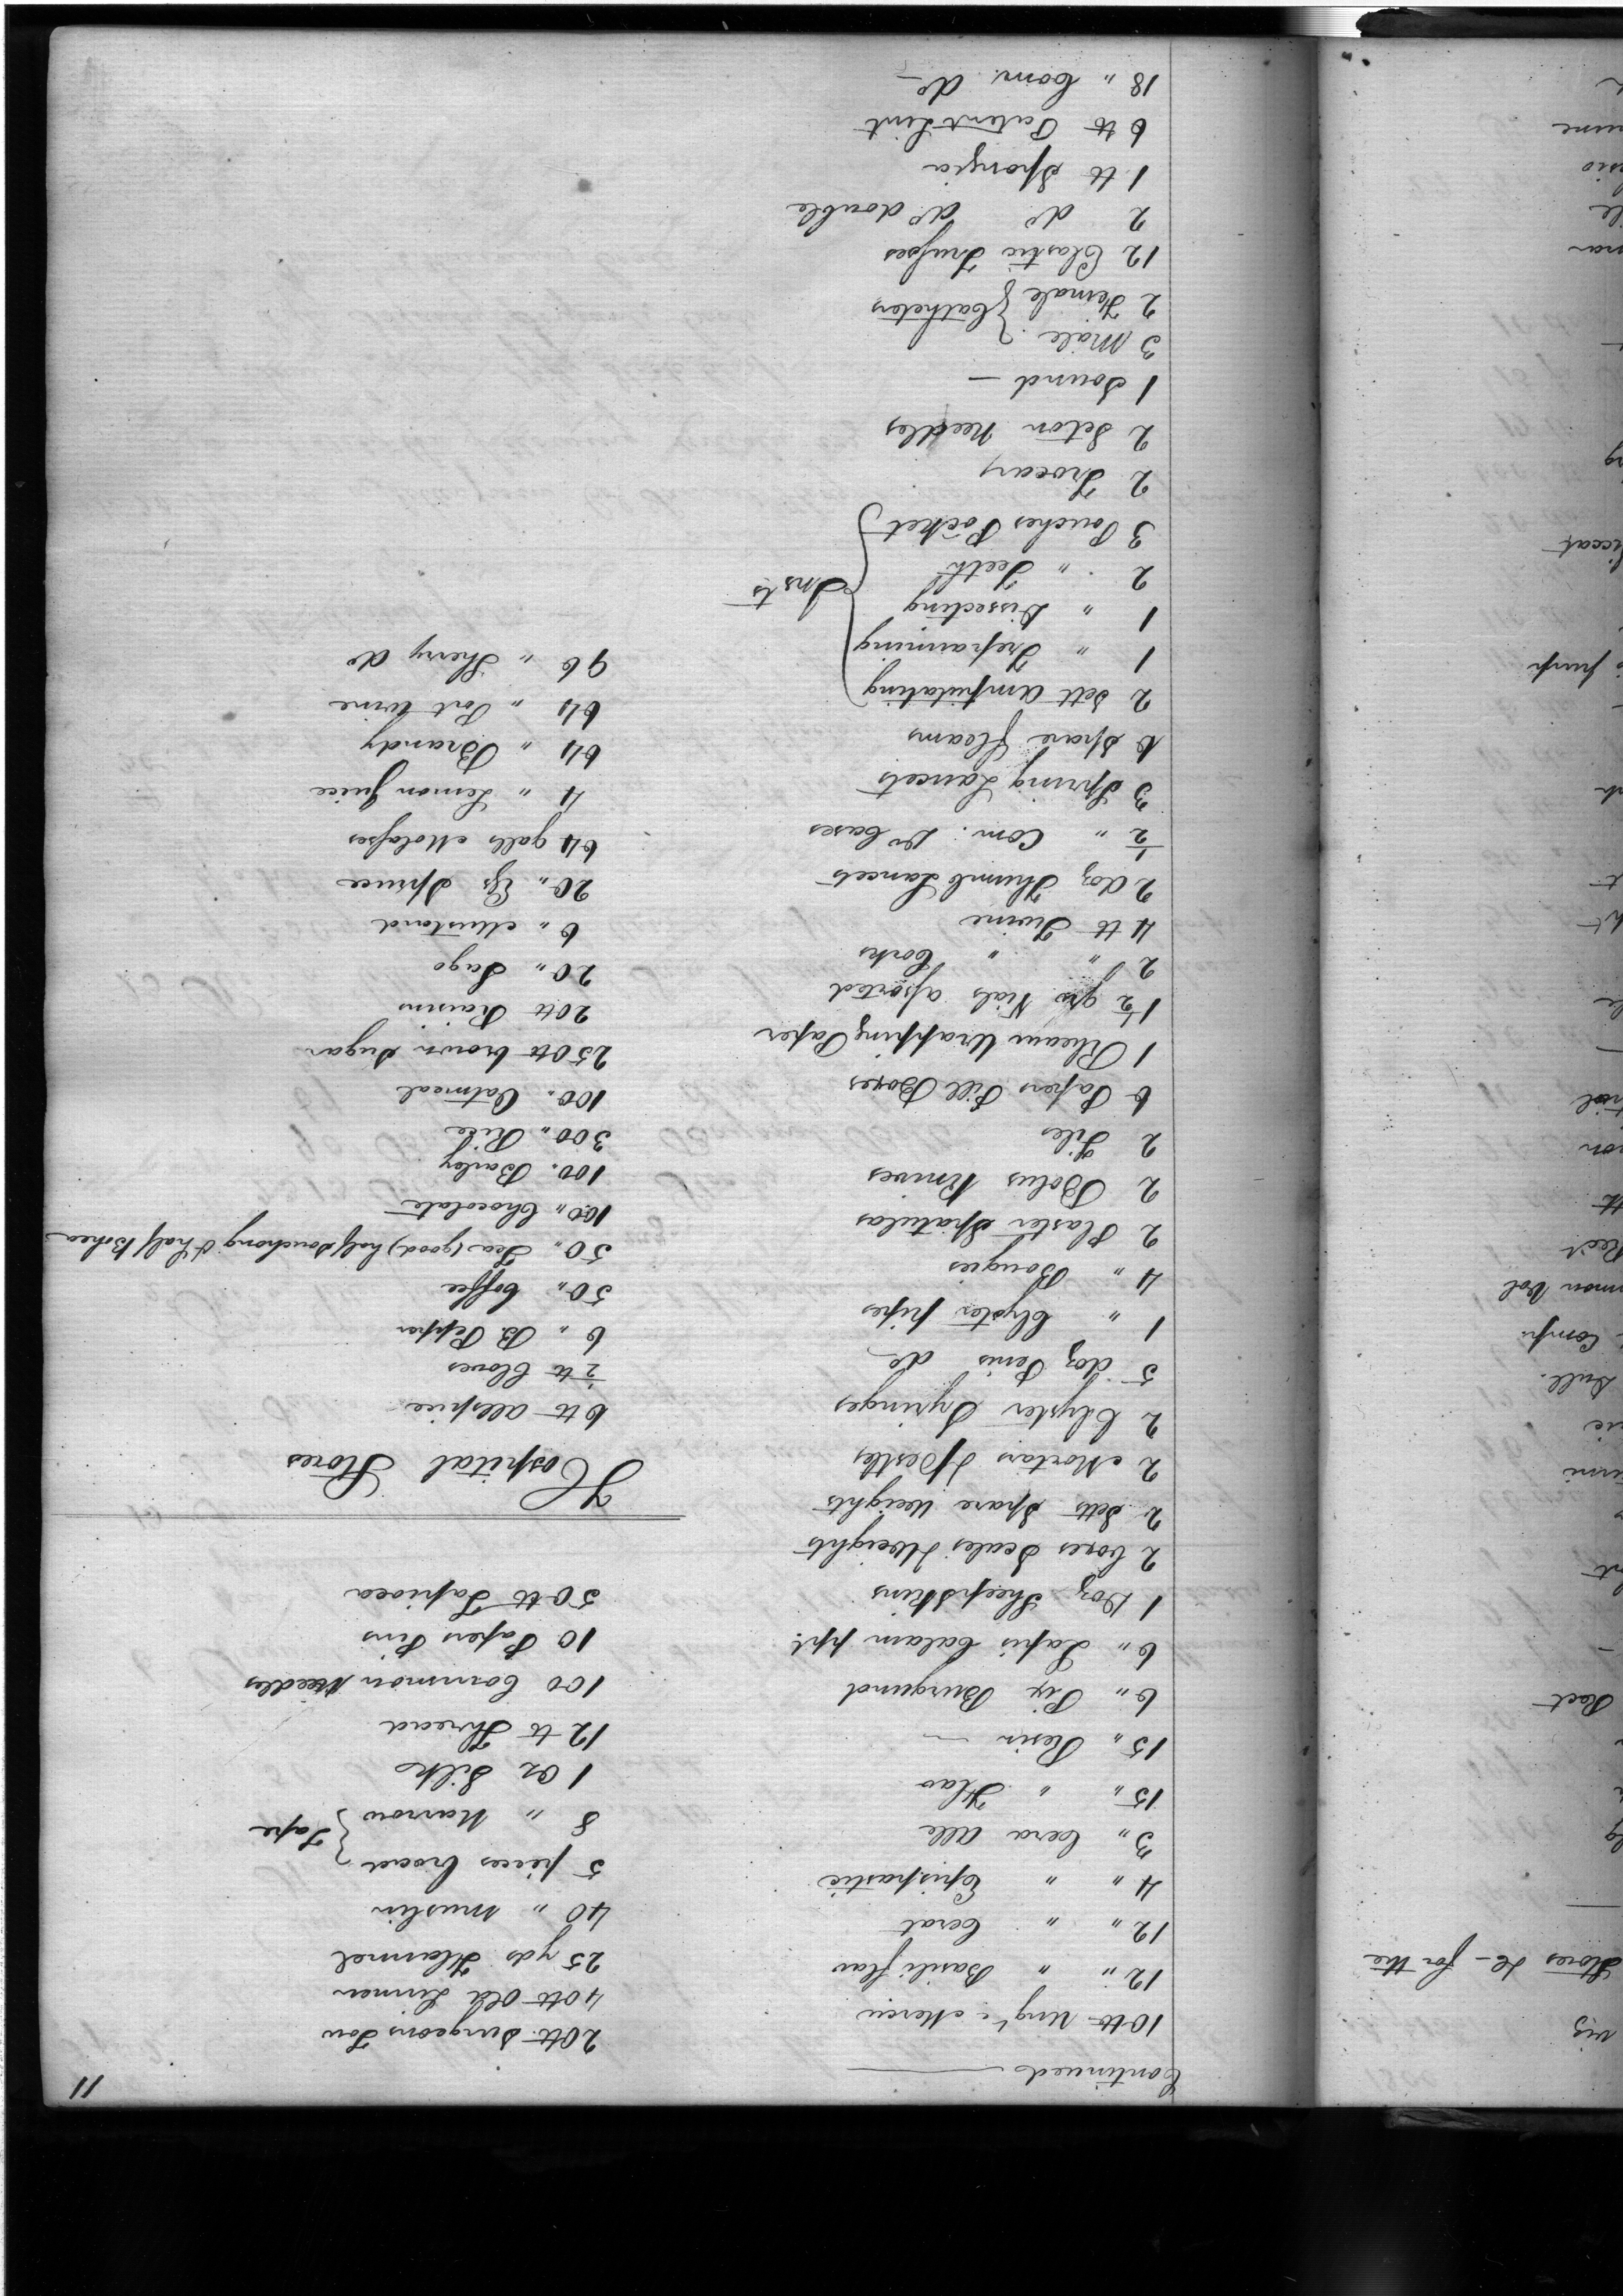 11
Continued
10 lb Ung't Mercu
12 " " Basili flav
12 " " Cerat
4 " " Epispastic
3 " Cera Alb
15 " " Flav
15 " Resin
6 " Pix Burgund
6 " Lapis Calam ppt.
1 Doz Sheepskins
2 boxes Scales & Weights
2 Setts Spare Weights
2 Mortars & Pestles
2 Clyster Syringes
5 doz Penis do
1 " Clyster pipes
4 " Bougies
2 Plaster Spatulas
2 Bolus Knives
2 Tiles
6 Papers Pill Boxes
1 Rheam Wrapping Paper
1½ gro Vials assorted
2 " " Corks
4 lb Twine
2 doz Thumb Lancets
½ " Com: Do Cases
3 Spring Lancets
6 Spare fleams
2 Sett Amputating
1 " Trepanning
1 " Dissecting
2 " Teeth
3 Pouches Pocket
Insts
2 Trocars
2 Seton Needles
1 Sound
3 Male
2 Female
Catheters
12 Elastic Trusses
2 do do double
1 lb Spongia
6 lb Patent Lint
18 " Com. do
20 lb Surgeons Tow
40 lb Old Linnen
25 yds Flannel
40 " Muslin
5 pieces broad
8 " Narrow
Tape
1 Oz Silk
12 lb Thread
100 Common Needles
10 Papers Pins
50 lb Tapioca
Hospital Stores
6 lb Allspice
½ lb Cloves
6 " B Pepper
50 " Coffee
50 " Tea (good) half Souchong & half Bohea
100 " Chocolate
100 " Barley
300 " Rice
100 " Oatmeal
250 lb brown Sugar
20 lb Raisins
20 " Sago
6 " Mustard
20 " Ess Spruce
64 galls Molasses
4 " Lemon Juice
64 " Brandy
64 " Port Wine
96 " Sherry do
viz
Stores &c - for the